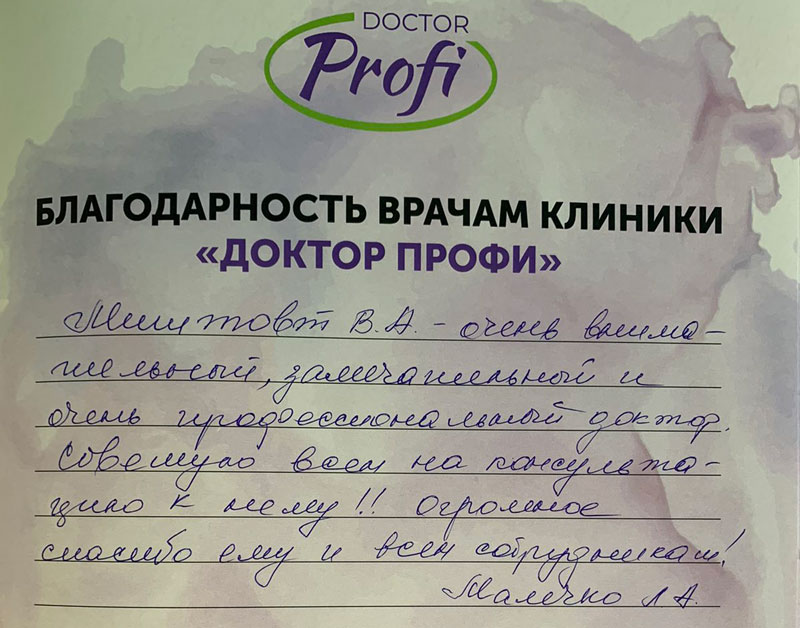 DOCTOR
Profi
БЛАГОДАРНОСТЬ ВРАЧАМ КЛИНИКИ
«ДОКТОР ПРОФИ»
В.А. - очень внима-
тельный, замечательный и
очень профессиональный доктор.
Советую всем на консульта-
цию к нему!! Огромное
спасибо ему и всем сотрудникам!
Малечко Л.А.